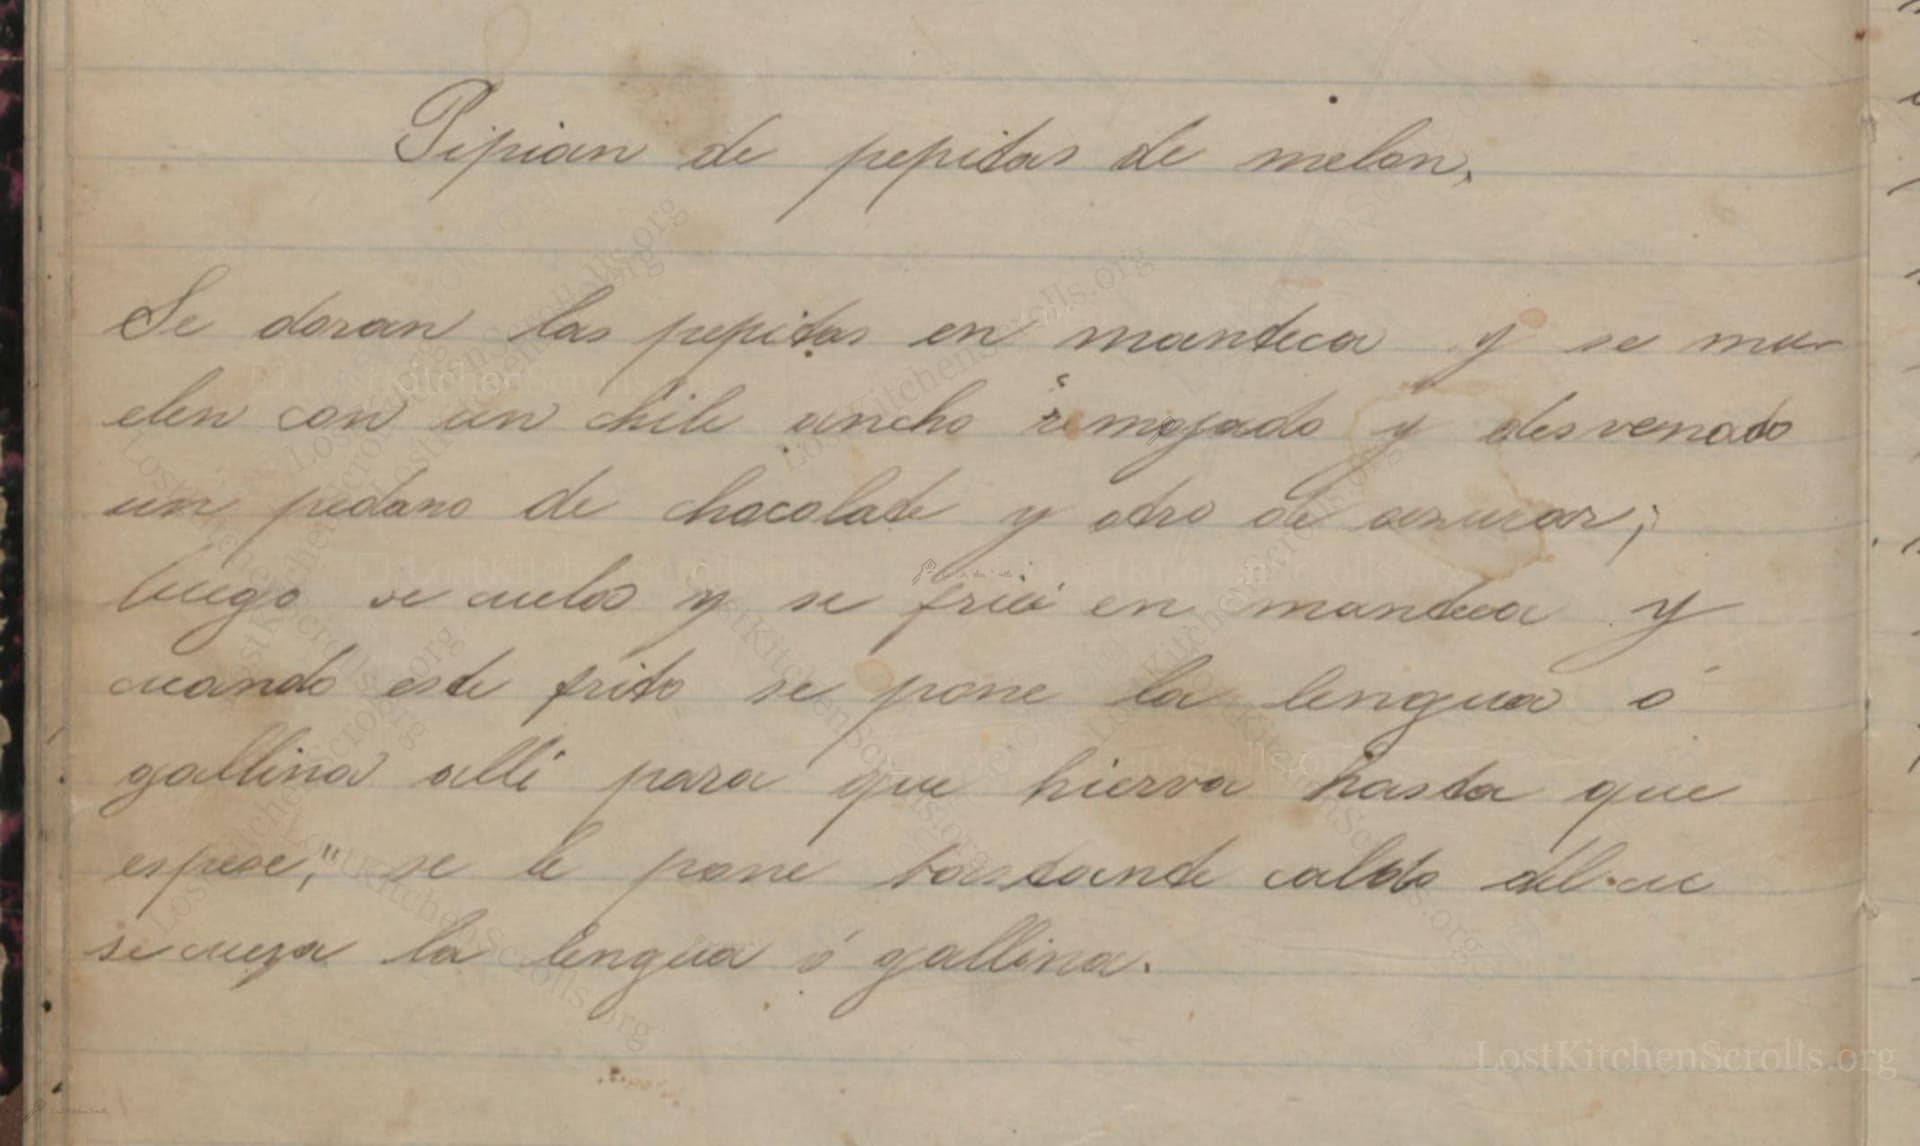 Pipian de pepitas de melon.
Se doran las pepitas en manteca y se mu-
elen con un chile ancho remojado y desvenado
un pedazo de chocolate y otro de azucar;
luego se cuela y se frie en manteca y
cuando este frito se pone la lengua ó
gallina alli para que hierva hasta que
espese; se le pone bastante caldo del
se cueza la lengua ó gallina.
LostKitchenScrolls.org